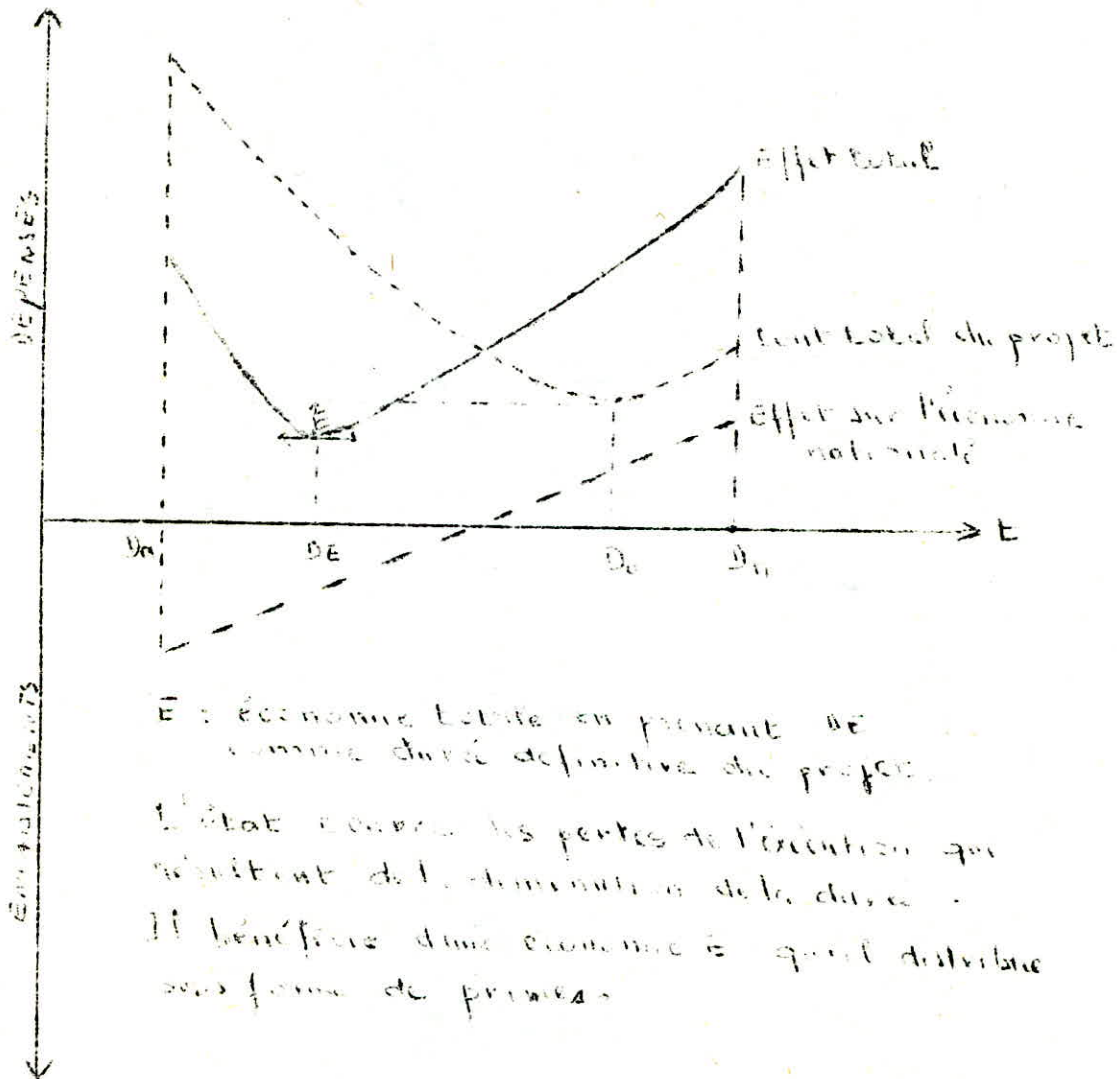 DÉPENSES
Effet total
Cout total du projet
Effet sur l'économie
nationale
E
t
DE
E : économie totale en prenant DE
comme durée definitive du projet.
L'état couvre les pertes de l'éxécution qui
résultent de la diminution de la durée.
Il bénéficie d'une économie E qu'il distribue
sous forme de primes.